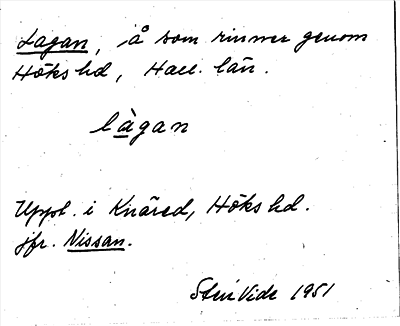 Lagan, å som rinner genom
Höks hd, Hall. län.
làgan
Uppt. i Knäred, Höks hd.
jfr. Nissan.
Sten Vide 1951